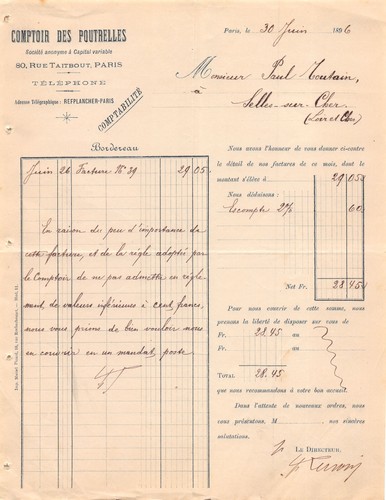 COMPTOIR DES POUTRELLES
Société anonyme à Capital variable
80, RUE TAITBOUT, PARIS
TÉLÉPHONE
Adresse Télégraphique : REFPLANCHER-PARIS
COMPTABILITÉ
Paris, le 30 Juin 1896
Monsieur Paul Toutain,
à
Selles-sur-Cher
(Loir et Cher)
Bordereau
Juin 26 Facture No 39 29 05
En raison du peu d'importance de
cette facture, et de la règle adoptée par
le Comptoir de ne pas admettre en règle
ment, de valeurs inférieures à cent francs,
nous vous prions de bien vouloir nous
en couvrir en un mandat poste
Nous avons l'honneur de vous donner ci-contre
le détail de nos factures de ce mois, dont le
montant s'élève à 29 05
Nous déduisons :
Escompte 2% 60
Net Fr. 28 45
Pour nous couvrir de cette somme, nous
prenons la liberté de disposer sur vous de
Fr. 28.45 au
Fr. au
Fr. au
TOTAL 28.45
que nous recommandons à votre bon accueil.
Dans l'attente de nouveaux ordres, nous
vous présentons, M, nos sincères
salutations.
LE DIRECTEUR,